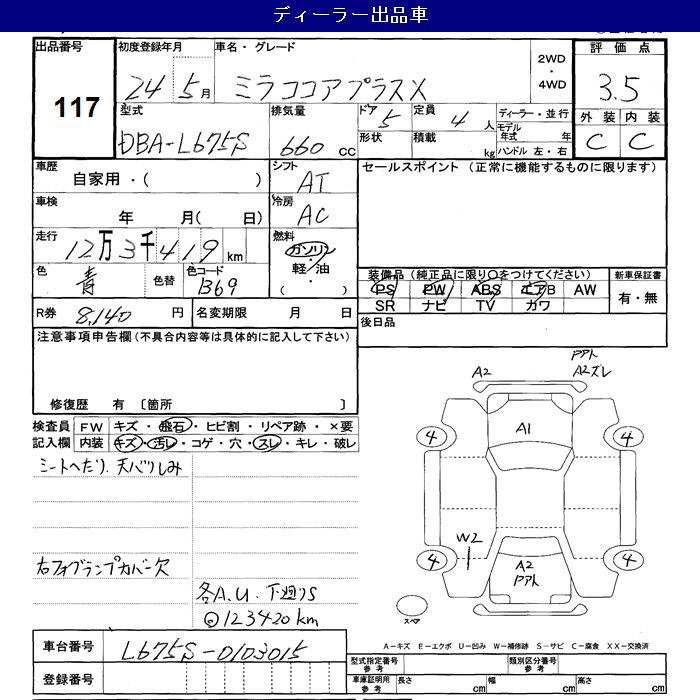 ディーラー出品車
出品番号 初度登録年月 車名・グレード 評価点
117
24 5月 ミラココアプラスX
2WD・4WD
3.5
型式 排気量 ドア 定員 ディーラー・並行 外装 内装
DBA-L675S 660cc 5 4人 モデル年式 年 C C
形状 積載 kg ハンドル 左・右
車歴 シフト セールスポイント (正常に機能するものに限ります)
自家用・( ) AT
車検 冷房
年 月( 日) AC
走行 燃料
12万3千419km ガソリン・軽・油
色 色替 色コード ( )
青 B69
装備品 (純正品に限り○をつけてください) 新車保証書
PS PW ABS エアB AW 有・無
SR ナビ TV カワ
R券 8,140円 名変期限 月 日
後日品
注意事項申告欄 (不具合内容等は具体的に記入して下さい)
修復歴 有 〔箇所 〕
検査員 FW キズ・飛石・ヒビ割・リペア跡・×要
記入欄 内装 キズ・汚レ・コゲ・穴・スレ・キレ・破レ
シートへたり、天バリしみ
右フォグランプカバー欠
各A.U. 下廻りS
123420km
A2 アト
A2ズレ
4 A1 4
W2
4 A2 4
アト
スペア
車台番号 L675S-0103015
登録番号
A－キズ E－エクボ U－凹み W－補修跡 S－サビ C－腐食 XX－交換済
型式指定番号 参考 類別区分番号 参考
車庫証明用 参考 長さ cm 幅 cm 高さ cm